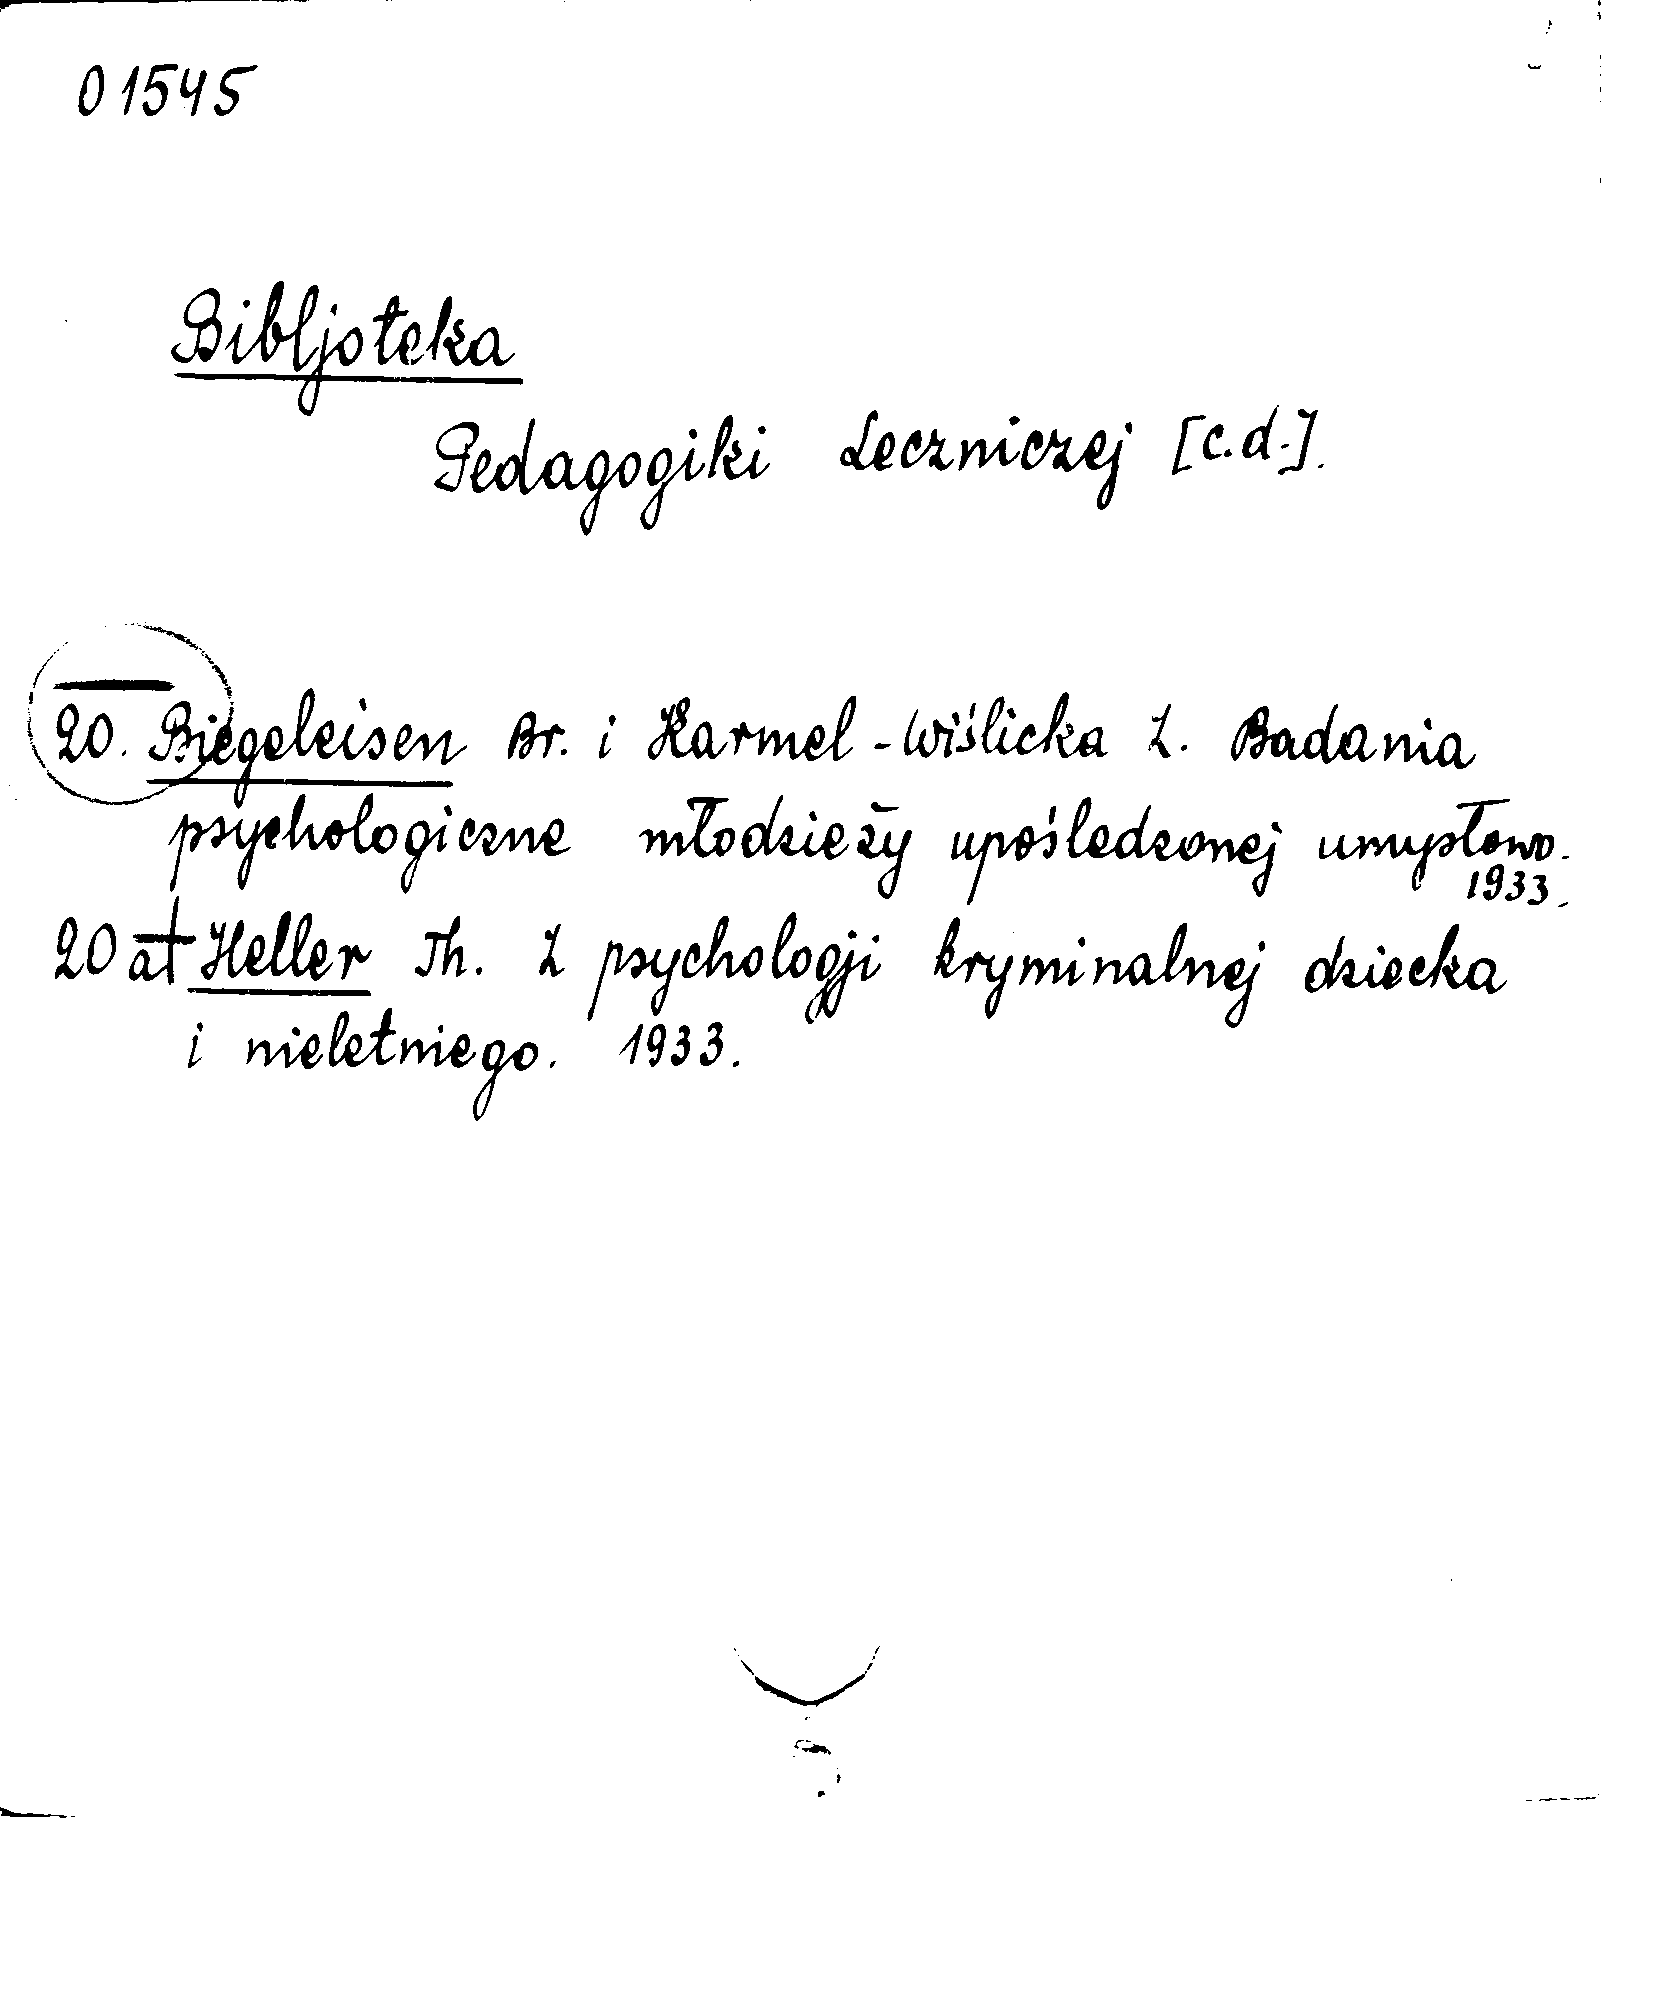 01545
Bibljoteka
Pedagogiki Leczniczej [c.d.].
20. Biegeleisen Br. i Karmel-Wiślicka Z. Badania
psychologiczne młodzieży upośledzonej umysłowo.
1933.
20 a Heller Th. Z psychologji kryminalnej dziecka
i nieletniego. 1933.